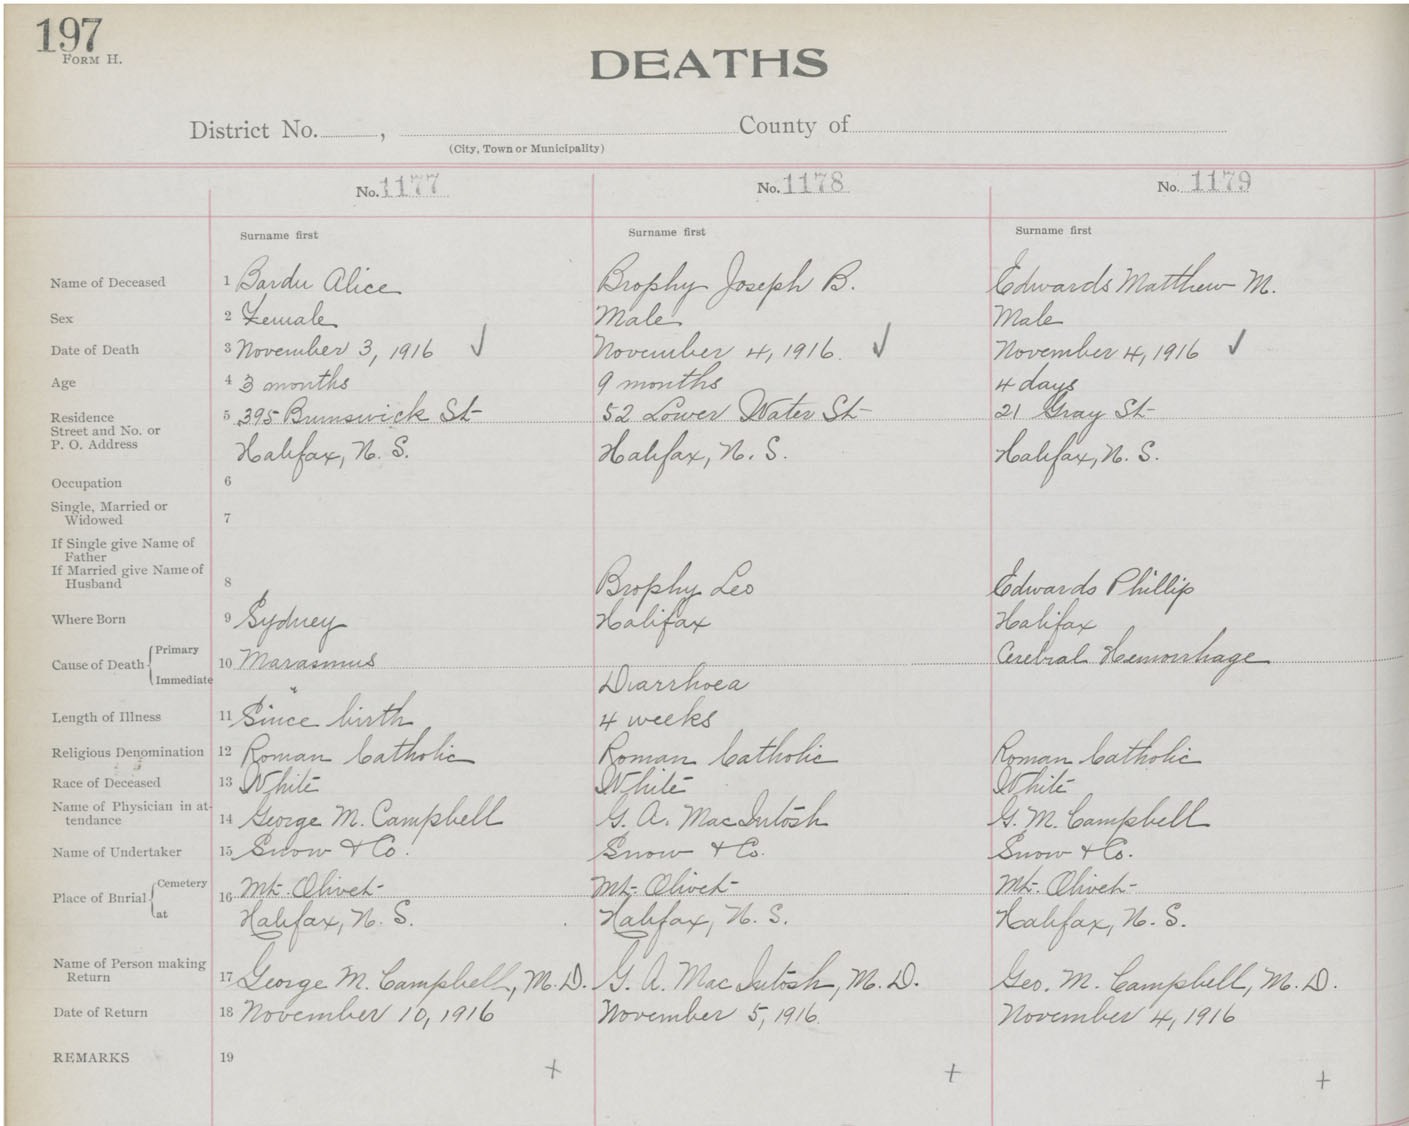 197
FORM H.
DEATHS
District No. , County of
(City, Town or Municipality)
No. 1177 No. 1178 No. 1179
Surname first Surname first Surname first
Name of Deceased 1 Bardu Alice Brophy Joseph B. Edwards Matthew M.
Sex 2 Female Male Male
Date of Death 3 November 3, 1916 ✓ November 4, 1916. ✓ November 4, 1916 ✓
Age 4 3 months 9 months 4 days
Residence 5 395 Brunswick St 52 Lower Water St 21 Gray St
Street and No. or
P. O. Address Halifax, N. S. Halifax, N. S. Halifax, N. S.
Occupation 6
Single, Married or
Widowed 7
If Single give Name of
Father
If Married give Name of
Husband 8 Brophy Leo Edwards Phillip
Where Born 9 Sydney Halifax Halifax
Cause of Death Primary 10 Marasmus Cerebral Hemorrhage
Immediate " Diarrhoea
Length of Illness 11 Since birth 4 weeks
Religious Denomination 12 Roman Catholic Roman Catholic Roman Catholic
Race of Deceased 13 White White White
Name of Physician in at-
tendance 14 George M. Campbell G. A. MacIntosh G. M. Campbell
Name of Undertaker 15 Snow & Co. Snow & Co. Snow & Co.
Place of Burial Cemetery 16 Mt. Olivet Mt. Olivet Mt. Olivet
at Halifax, N. S. Halifax, N. S. Halifax, N. S.
Name of Person making
Return 17 George M. Campbell, M.D. G. A. MacIntosh, M.D. Geo. M. Campbell, M.D.
Date of Return 18 November 10, 1916 November 5, 1916. November 4, 1916
REMARKS 19
+ + +